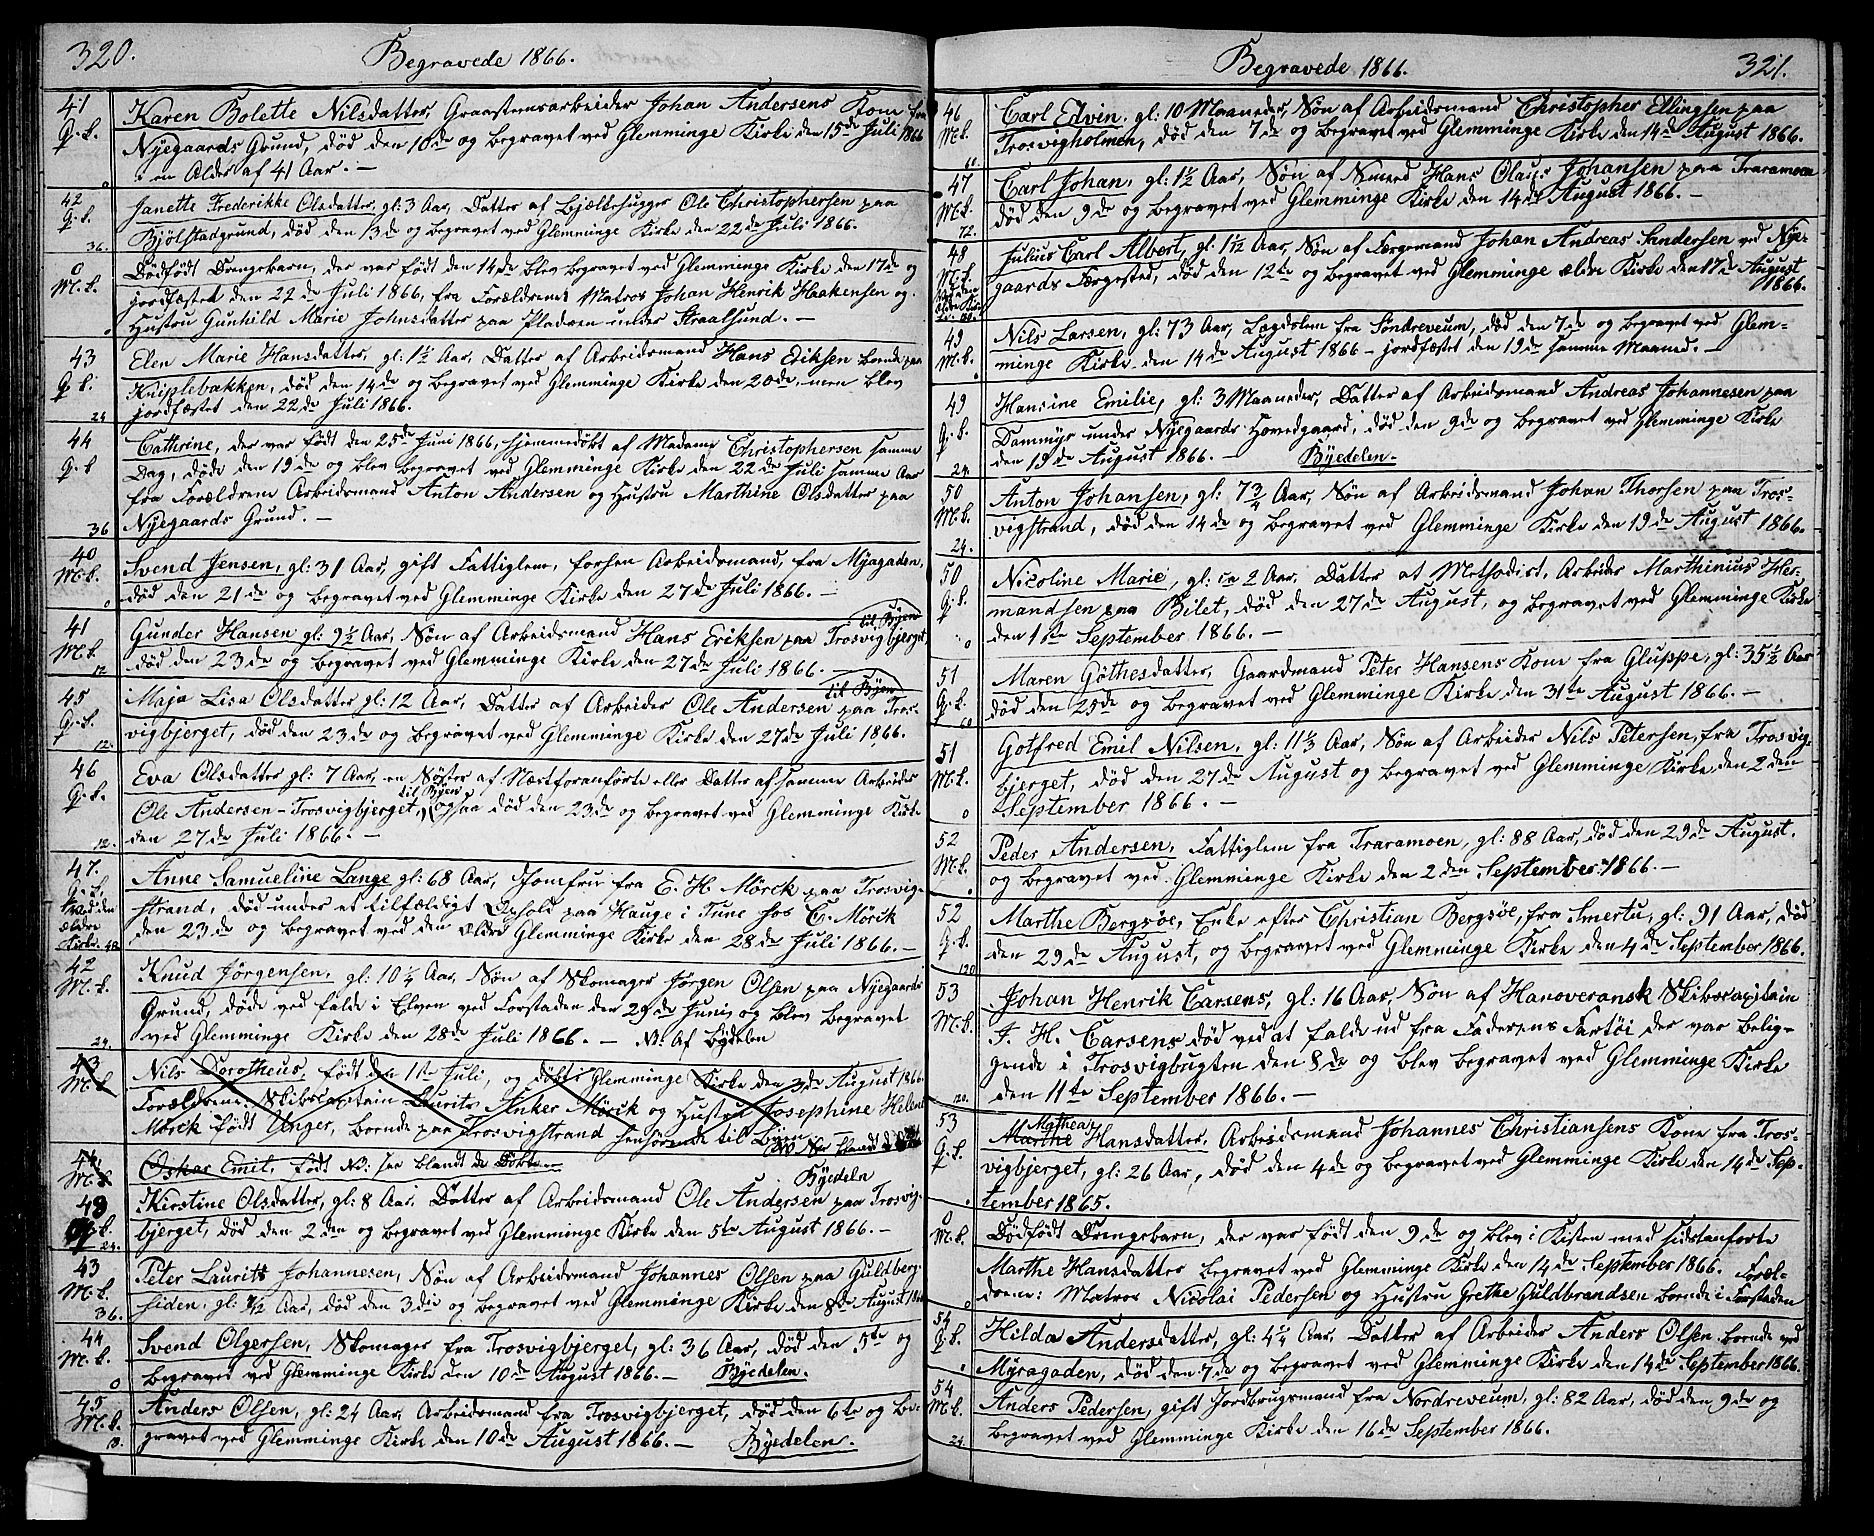 320.
Begravede 1866.
41 Karen Bolette Nilsdatter, Graastensarbeider Johan Andersens Kone fra
Q.k. Nyegaards Grund, død den 10de og begravet ved Glemminge Kirke den 15de Juli 1866
0 i en Alder af 41 Aar. —
42 Janette Frederikke Olsdatter, gl. 3 Aar, Datter af Bjælkehugger Ole Christophersen paa
Q.k. 36. Bjølstadgrund, død den 13de og begravet ved Glemminge Kirke den 22de Juli 1866.
0 Dødfødt Drengebarn, der var født den 14de blev begravet ved Glemminge Kirke den 17de og
M.k. jordfæstet den 22de Juli 1866, fra Forældrene Matros Johan Henrik Haakensen og
0 Hustru Gunhild Marie Johnsdatter paa Pladsen under Straalsund. —
43 Elen Marie Hansdatter, gl. 1½ Aar, Datter af Arbeidsmand Hans Eriksen boende paa
Q.k. Kniplebakken, død den 14de og begravet ved Glemminge Kirke den 20de, men blev
24 jordfæstet den 22de Juli 1866.
44 Cathrine, der var født den 25de Juni 1866, hjemmedøbt af Madame Christophersen samme
Q.k Dag, døde den 19de og blev begravet ved Glemminge Kirke den 22de Juli samme Aar
fra Forældrene Arbeidsmand Anton Andersen og Hustru Marthine Olsdatter paa
36 Nyegaards Grund. —
40 Svend Jensen, gl. 31 Aar, gift Fattiglem, forhen Arbeidsmand, fra Myragaden,
M.k. 0 død den 21de og begravet ved Glemminge Kirke den 27de Juli 1866. —
til Byen
41 Gunder Hansen gl. 9½ Aar, Søn af Arbeidsmand Hans Eriksen paa Trosvigbjerget,
M.k. 12 død den 23de og begravet ved Glemminge Kirke den 27de Juli 1866.
til Byen
45 Maja Lisa Olsdatter gl. 12 Aar, Datter af Arbeider Ole Andersen paa Tros-
Q.k. 12. vigbjerget, død den 23de og begravet ved Glemminge Kirke den 27de Juli 1866.
46 Eva Olsdatter gl. 7 Aar, en Søster af Næstforanførte eller Datter af samme Arbeider
til Byen
Q.k. Ole Andersen – Trosvigbjerget, ogsaa død den 23de og begravet ved Glemminge Kirke
12. den 27de Juli 1866. —
47. Anne Samueline Lange gl. 68 Aar, Jomfru fra E. H. Mörck paa Trosvig-
Q.k. Ved den strand, død under et tilfældigt Ophold paa Hauge i Tune hos C. Mörck
ældre Kirke. 48 den 23de og begravet ved den ældre Glemminge Kirke den 28de Juli 1866. —
42 Knud Jörgensen, gl. 10¼ Aar, Søn af Skomager Jörgen Olsen paa Nyegaards
M.k. Grund, døde ved Falde i Elven ved Forstaden den 29de Juni, og blev begravet
24. ved Glemminge Kirke den 28de Juli 1866. — N: Af Bydelen
43 Nils Dorotheus, født den 11te Juli, og døbt i Glemminge Kirke den 3de August 1866
M.k. Forældrene: Skibscaptain Laurits Anker Mörck og Hustru Josephine Helene
Mörck født Unger, boende paa Trosvigstrand henhørende til Byen
M.k. Oskar Emil, født NB: see blandt de Døbte.
Byedelen
48 Kirstine Olsdatter, gl. 8 Aar. Datter af Arbeidsmand Ole Andersen paa Trosvig-
Q.k. 24. bjerget, død den 2den og begravet ved Glemminge Kirke den 5te August 1866. —
43 Peter Lauritz Johannesen, Søn af Arbeidsmand Johannes Olsen paa Guldberg-
M.k. 36. siden, gl. 9/12 Aar, død den 3die og begravet ved Glemminge Kirke den 8de August 1866
44 Svend Olgersen, Skomager fra Trosvigbjerget, gl. 36 Aar, død den 5te og
M.k. 0 begravet ved Glemminge Kirke den 10de August 1866. — Byedelen.
45 Anders Olsen, gl. 24 Aar, Arbeidsmand fra Trosvigbjerget, død den 6te og be-
M.k. 0. gravet ved Glemminge Kirke den 10de August 1866. — Byedelen.
Begravede 1866.
321.
46 Carl Edvin, gl. 10 Maaneder, Søn af Arbeidsmand Christopher Ellingsen paa
M.k. 60. Trosvigholmen, død den 7de og begravet ved Glemminge Kirke den 14de August 1866.
47 Carl Johan, gl. 1½ Aar, Søn af Smed Hans Olaus Johansen paa Traramoen
M.k. 72. død den 9de og begravet ved Glemminge Kirke den 14de August 1866. —
48 Julius Carl Albert, gl. 1 1/12 Aar, Søn af Færgemand Johan Andreas Andersen ved Nye-
M.k. Ved den ældre Kirke. gaards Færgested, død den 12te og begravet ved Glemminge ældre Kirke den 17de August
1866.
49 Nils Larsen, gl. 73 Aar, Lægdslem fra Søndreveum, død den 7de og begravet ved Glem-
M.k. minge Kirke den 14de August 1866 – jordfæstet den 19de samme Maaned. —
49 Hansine Emilie, gl. 3 Maaneder, Datter af Arbeidsmand Andreas Johannesen paa
Q.k. Dammyr under Nyegaards Hovedgaard, død den 9de og begravet ved Glemminge Kirke
24. den 19de August 1866. — Byedelen.
50 Anton Johansen, gl. 7¾ Aar, Søn af Arbeidsmand Johan Thorsen paa Tros-
M.k. 24. vigstrand, død den 14de og begravet ved Glemminge Kirke den 19de August 1866.
50 Nicoline Marie, gl. ca 2 Aar, Datter af Methodist, Arbeider Marthinius Her-
Q.k. mandsen paa Bilet, død den 27de August, og begravet ved Glemminge Kirke
0 den 1ste September 1866. —
51 Maren Göthesdatter, Gaardmand Peter Hansens Kone fra Gluppe, gl. 35½ Aar
Q.k. 60. død den 25de og begravet ved Glemminge Kirke den 31te August 1866. —
51 Gotfred Emil Nilsen, gl. 11⅓ Aar, Søn af Arbeider Nils Petersen, fra Trosvig-
M.k. bjerget, død den 27de August og begravet ved Glemminge Kirke, den 2den
0 September 1866. —
52 Peder Andersen, Fattiglem fra Traramoen, gl: 88 Aar, død den 29de August.
M.k. og begravet ved Glemminge Kirke den 2den September 1866. —
52 Marthe Bergsøe, Enke efter Christian Bergsøe, fra Smertu, gl. 91 Aar, død
Q.k. 120 den 29de August, og begravet ved Glemminge Kirke den 4de September 1866.
53 Johan Henrik Carsens, gl. 16 Aar, Søn af Hanoveransk Skibscapitain
M.k. J. H. Carsens død ved at falde ud fra Faderens Fartöi der var belig-
gende i Trosvigbugten den 8de og blev begravet ved Glemminge Kirke
120. den 11te September 1866. —
Mathea
53 Marthe Hansdatter, Arbeidsmand Johannes Christiansens Kone fra Tros-
Q.k. vigbjerget, gl. 26 Aar, død den 4de og begravet ved Glemminge Kirke den 14de Sep-
tember 1865.
0 Dødfødt Drengebarn, der var født den 9de og blev i Kisten med sidstanførte
M.k. Marthe Hansdatter begravet ved Glemminge Kirke den 14de September 1866. Foræl-
0 drene: Matros Nicolai Pedersen og Hustru Grethe Guldbrandsen boende i Forstaden
54 Hilda Andersdatter, gl. 4¼ Aar, Datter af Arbeider Anders Olsen boende ved
Q.k. Myragaden, død den 7de og begravet ved Glemminge Kirke den 14de September 1866.
54 Anders Pedersen, gift Jordbrugsmand fra Nordreveum, gl. 82 Aar, død den 9de og
M.k. 24. begravet ved Glemminge Kirke den 16de September 1866.